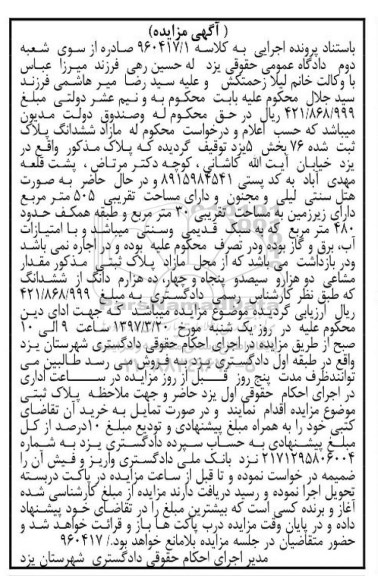 ( آگهی مزایده)
باستناد پرونده اجرایی به کلاسه ۹۶۰۴۱۷/۱ صادره از سوی شعبه
دوم دادگاه عمومی حقوقی یزد له حسین رهی فرزند میرزا عباس
با وکالت خانم لیلا زحمتکش و علیه سید رضا میر هاشمی فرزند
سید جلال محکوم علیه بابت محکوم به و نیم عشر دولتی مبلغ
۴۲۱/۸۶۸/۹۹۹ ریال در حق محکوم له وصندوق دولت مدیون
میباشد که حسب اعلام و درخواست محکوم له مازاد ششدانگ پلاک
ثبت شده ۷۶ بخش ۵یزد توقیف گردیده که پلاک مذکور واقع در
یزد خیابان آیت الله کاشانی ، کوچه دکتر مرتاض ، پشت قلعه
مهدی آباد به کد پستی ۸۹۱۵۹۸۴۵۴۱ و در حال حاضر به صورت
هتل سنتی لیلی و مجنون و دارای مساحت تقریبی ۵۰۵ متر مربع
دارای زیرزمین به مساحت تقریبی ۳۰ متر مربع و طبقه همکف حدود
۴۸۰ متر مربع که به سبک قدیمی وسنتی میباشد و با امتیازات
آب، برق و گاز بوده ودر تصرف محکوم علیه بوده و در اجاره نمی باشد
ودر بازداشت می باشد که از محل مازاد پلاک ثبتی مذکور مقدار
مشاعی دو هزارو سیصدو پنجاه و چهار، ده هزارم دانگ از ششدانگ
که طبق نظر کارشناس رسمی دادگستری به مبلغ ۴۲۱/۸۶۸/۹۹۹
ریال ارزیابی گردیده موضوع مزایده میباشد که جهت ادای دین
محکوم علیه در روز یک شنبه مورخ ۱۳۹۷/۳/۲۰ ساعت ۹ الی ۱۰
صبح از طریق مزایده در اجرای احکام حقوقی دادگستری شهرستان یزد
واقع در طبقه اول دادگستری یزد به فروش می رسد طالبین می
توانندظرف مدت پنج روز قبل از روز مزایده در ساعت اداری
در اجرای احکام حقوقی اول یزد حاضر و جهت ملاحظه پلاک ثبتی
موضوع مزایده اقدام نمایند و در صورت تمایل به خرید آن تقاضای
کتبی خود را به همراه مبلغ پیشنهادی و تودیع مبلغ ۱۰درصد از کل
مبلغ پیشنهادی به حساب سپرده دادگستری یزد به شماره
۲۱۷۱۲۹۵۸۰۶۰۰۴ نزد بانک ملی دادگستری واریز و فیش آن را
ضمیمه در خواست نموده و تا قبل از ساعت مزایده در پاکت دربسته
تحویل اجرا نموده و رسید دریافت دارند مزایده از مبلغ کارشناسی شده
آغاز و برنده کسی است که بیشترین مبلغ را در تقاضای خود پیشنهاد
داده و در پایان وقت مزایده درب پاکت ها باز و قرائت خواهد شد و
حضور متقاضیان در جلسه مزایده بلامانع خواهد بود./ ۹۶۰۴۱۷
مدیر اجرای احکام حقوقی دادگستری شهرستان یزد